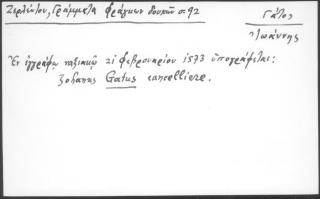 Ζερλέντου, Γράμματα Φράγκων δουκῶν σ. 92
Γάτος
Ἰωάννης
Ἐν ἐγγράφῳ ναξιακῷ 21 φεβρουαρίου 1573 ὑπογράφεται:
Johanes Gatus cancelliere.